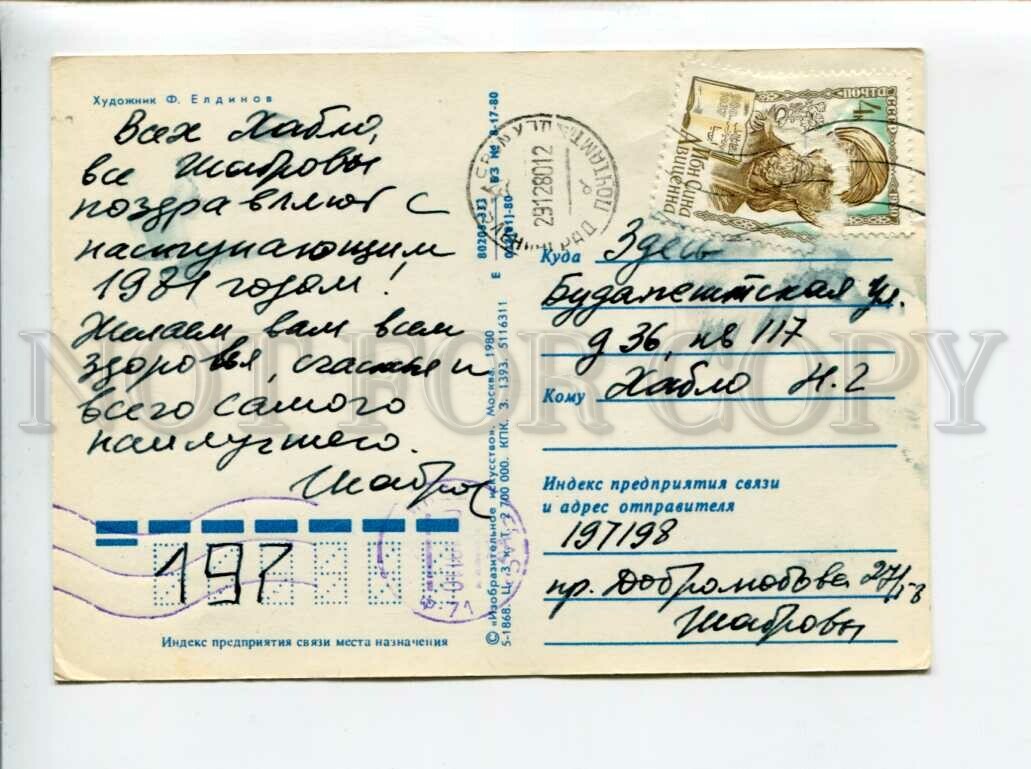 Художник Ф. Елдинов
Всех Хабло,
все Шабровы
поздравляют с
наступающим
1981 годом!
Желаем вам всем
здоровья, счастья и
всего самого
наилучшего.
Шабро
197
Индекс предприятия связи места назначения
© «Изобразительное искусство». Москва. 1980
5-1868. Ц. 3 к. Т. 2 700 000. КПК. З. 1393. 5116311
ПОЧТАМТ
29128012
4к
ПОЧТА
СССР
1980
Ибн Сина
Авиценна
Куда Здесь
Будапештская ул.
д 36, кв 117
Кому Хабло Н. Г
Индекс предприятия связи
и адрес отправителя
197198
пр. Добролюбова 27/
Шабровы
NOT FOR COPY